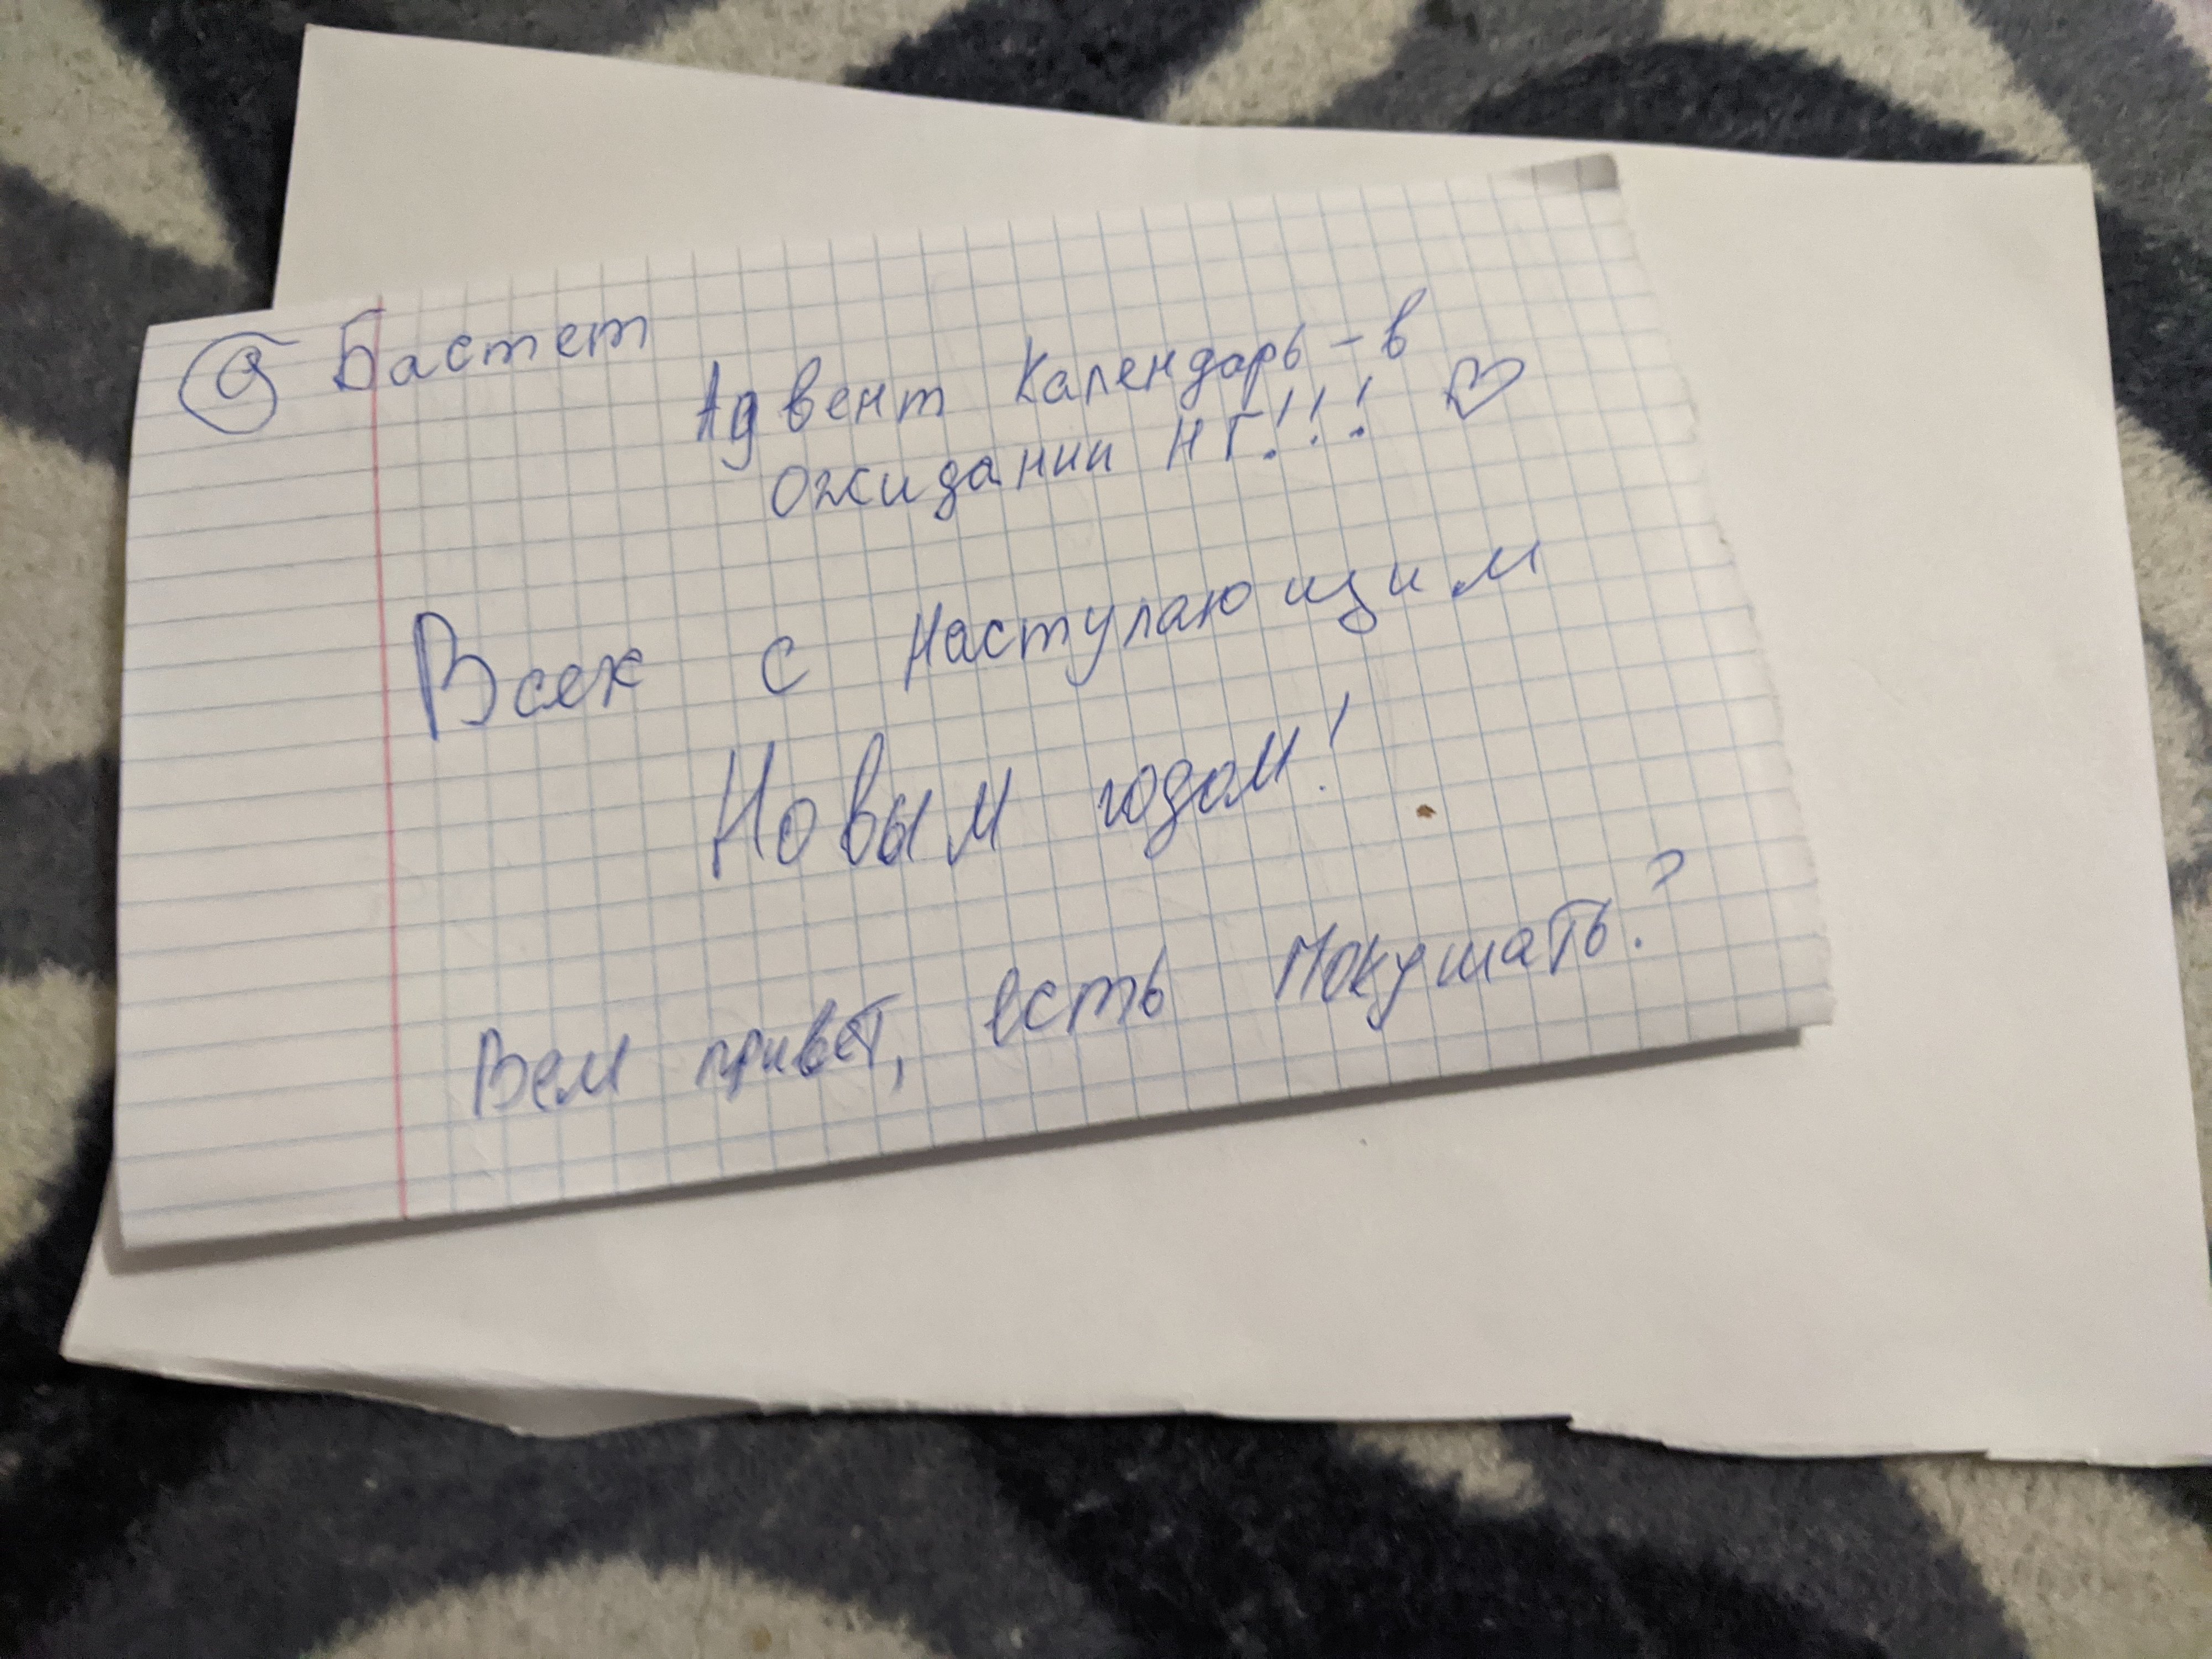 @ Бастет
Адвент Календарь - в
ожидании НГ!!! ♡
Всех с Наступающим
Новым годом!
Вем привет, есть покушать?